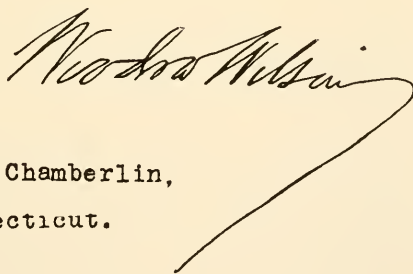 Woodrow Wilson
Chamberlin,
ecticut.